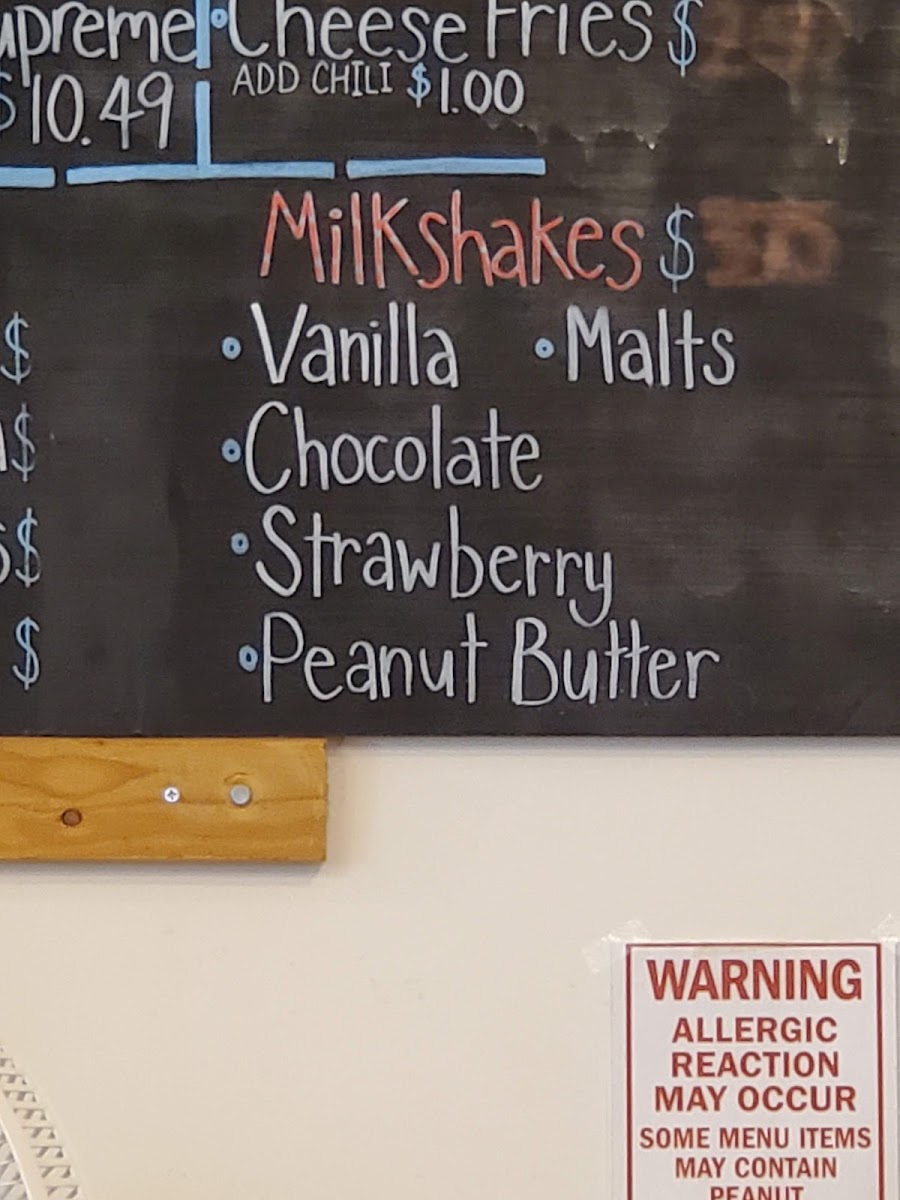 Cheese Fries $
ADD CHILI $1.00
$10.49
Milkshakes $
• Vanilla • Malts
• Chocolate
• Strawberry
• Peanut Butter
$
$
$
$
WARNING
ALLERGIC
REACTION
MAY OCCUR
SOME MENU ITEMS
MAY CONTAIN
PEANUT